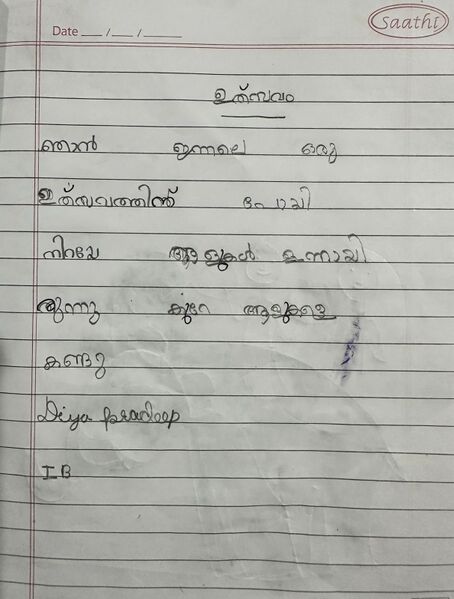 Saathi
Date __/__/____
ഉത്സവം
ഞാൻ ഇന്നലെ ഒരു
ഉത്സവത്തിന് പോയി
നിറയേ ആളുകൾ ഉന്നായി
രുന്നു കുറേ ആളുകളെ
കണ്ടു
Diya pradeep
I B